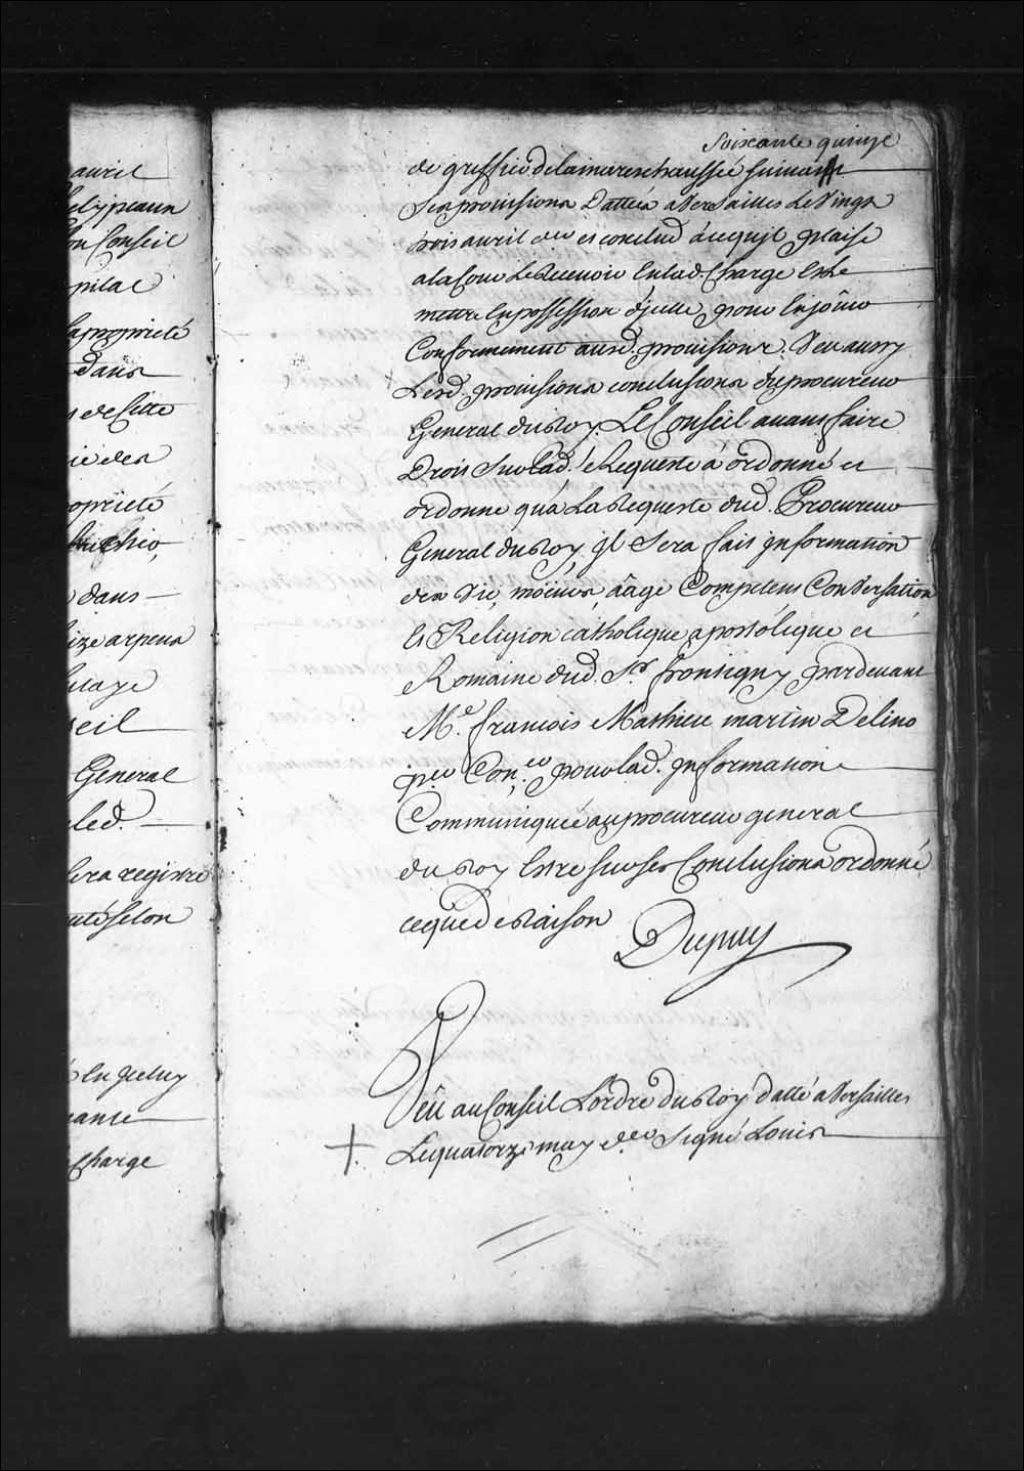 avril
et ypeaux
on Conseil
pital
la propriété
dans
s de Cette
ié des
opriété
dans
ize arpens
laye
seil
General
led.
sera registré
uté selon
en jceluy
nance
Charge
Soixante quinze
de greffier de la mareschaussée suivant
ses provisions dattées a Versailles Le Vingt
trois avril der et conclud a ce qu'jl plaise
a la Cour Le Recevoir En lad. Charge Et le
mettre En possession d'jcelle pour En joüir
Conformement ausd. provisions. Veu aussy
Lesd. provisions conclusions du procureur
General du Roy. Le Conseil avant faire
Droit Sur Lad. Requeste a ordonné et
ordonne qu'a La Requeste dud. Procureur
General du Roy, jl Sera fait jnformation
des Vie, moeurs, âage Competent Conversation
Et Religion catholique apostolique et
Romaine dud. Sr. frontigny pardevant
Me. francois Mathieu martin Delino
per Coner. pour lad. jnformation
Communiquée au procureur general
du Roy Estre sur ses Conclusions ordonné
ce que de Raison
Dupuy
Veu au Conseil L'ordre du Roy datté a Versailles
+ Le quatorze may der. Signé Louis